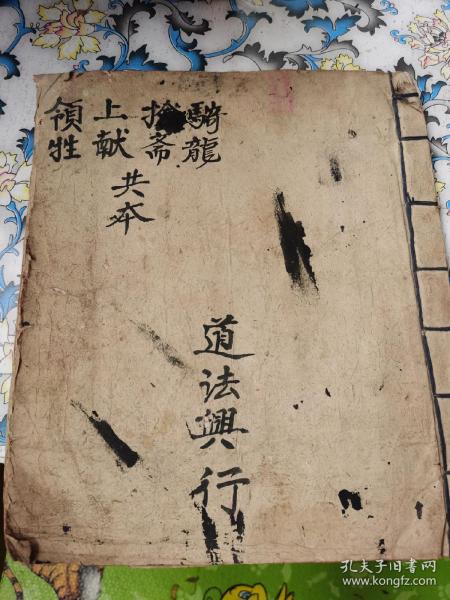 騎龍
拾斋
上献
領牲
共本
道法興行
孔夫子旧书网
www.kongfz.com